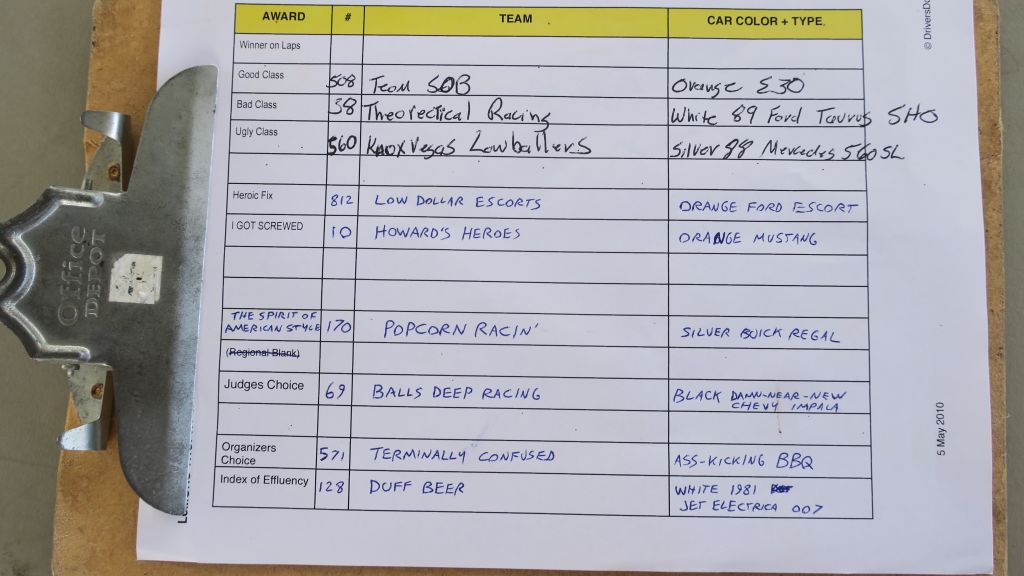 AWARD # TEAM CAR COLOR + TYPE
Winner on Laps
Good Class 508 Team SOB Orange E30
Bad Class 58 Theorectical Racing White 89 Ford Taurus SHO
Ugly Class 560 KnoxVegas Lowballers Silver 88 Mercedes 560 SL
Heroic Fix 812 LOW DOLLAR ESCORTS ORANGE FORD ESCORT
I GOT SCREWED 10 HOWARD'S HEROES ORANGE MUSTANG
THE SPIRIT OF
AMERICAN STYLE 170 POPCORN RACIN' SILVER BUICK REGAL
(Regional Blank)
Judges Choice 69 BALLS DEEP RACING BLACK DAMN-NEAR-NEW
CHEVY IMPALA
Organizers
Choice 571 TERMINALLY CONFUSED ASS-KICKING BBQ
Index of Effluency 128 DUFF BEER WHITE 1981
JET ELECTRICA 007
5 May 2010
Office
DEPOT